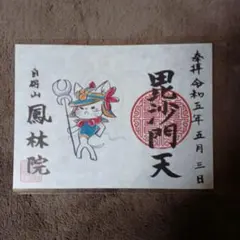 奉拝 令和五年五月三日
毘沙門天
自明山
鳳林院